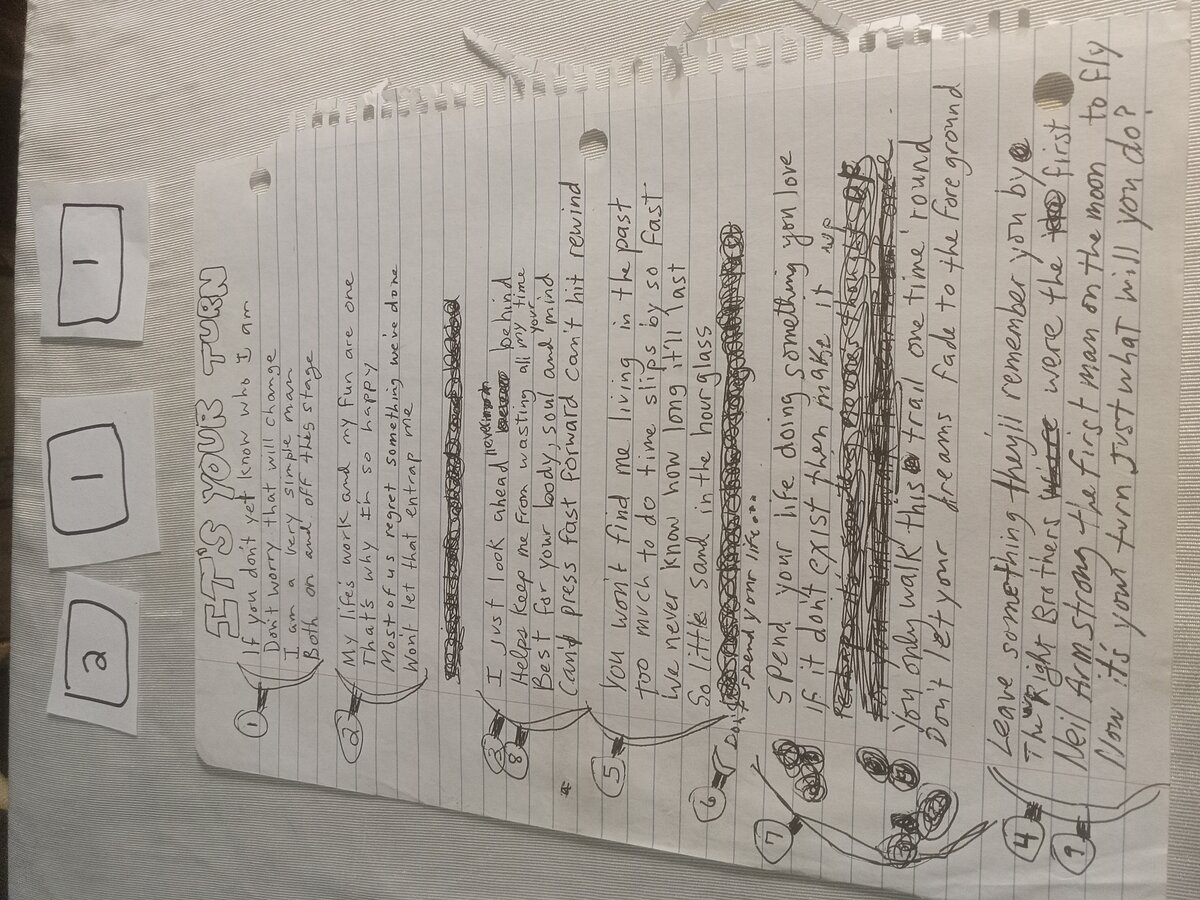 2
1
1
IT'S YOUR TURN
1
If you don't yet know who I am
Don't worry that will change
I am a very simple man
Both on and off this stage
2
My life's work and my fun are one
That's why I'm so happy
Most of us regret something we've done
Won't let that entrap me
3
8
I just look ahead leaving behind
Helps keep me from wasting all my time
Best for your body, your soul and mind
Can't press fast forward can't hit rewind
5
You won't find me living in the past
too much to do time slips by so fast
We never know how long it'll last
So little sand in the hourglass
6
Don't spend your life....
7
Spend your life doing something you love
If it don't exist then make it up
You only walk this trail one time 'round
Don't let your dreams fade to the foreground
4
9
Leave something they'll remember you by
The Right Brothers were the first
Neil Armstrong the first man on the moon to fly
Now it's your turn Just what will you do?